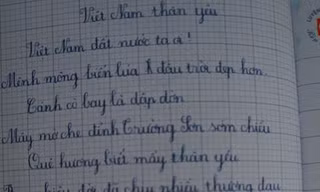 Việt Nam thân yêu
Việt Nam đất nước ta ơi!
Mênh mông biển lúa đâu trời đẹp hơn.
Cánh cò bay lả dập dờn
Mây mờ che đỉnh Trường Sơn sớm chiều
Quê hương biết mấy thân yêu
đời đã chịu nhiều thương đau